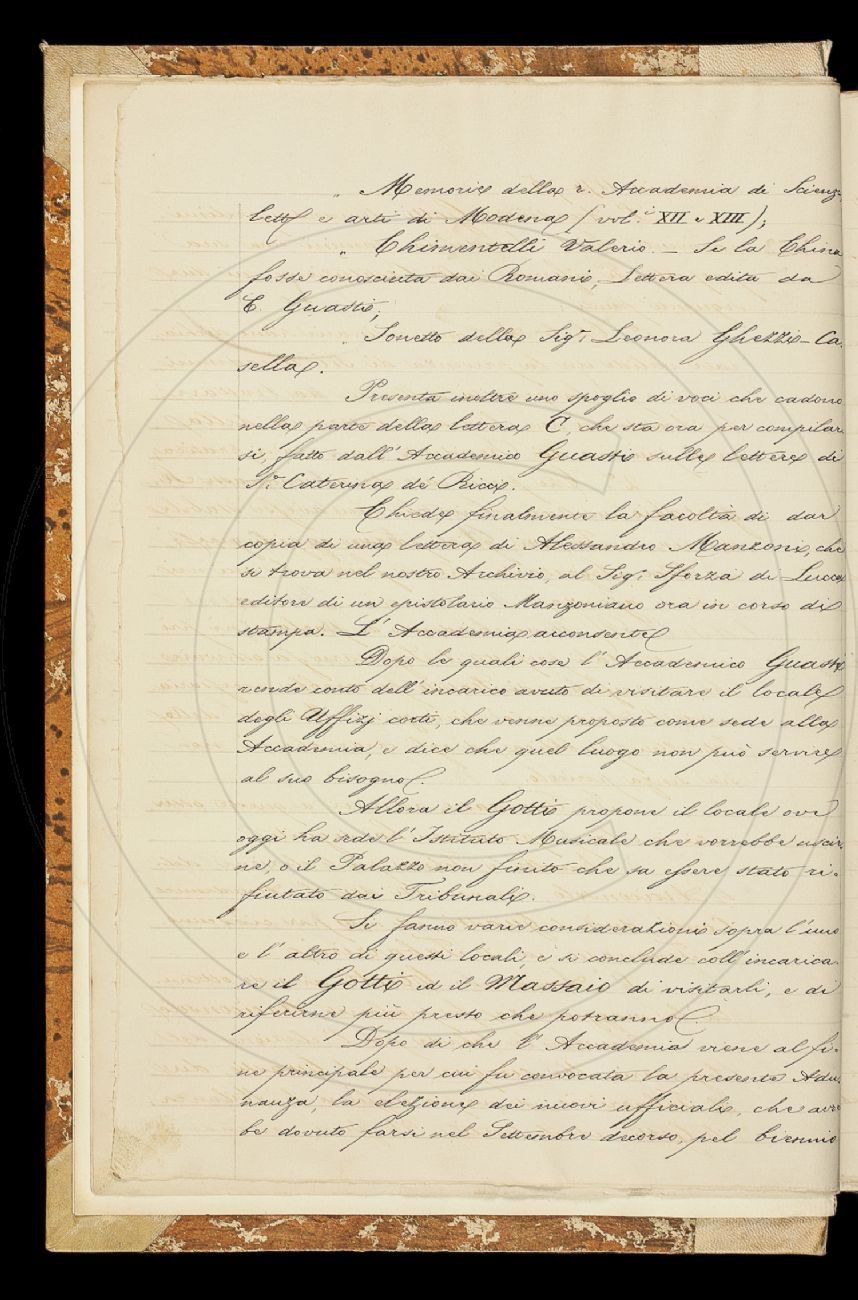 „ Memorie della r. Accademia di Scienz.
lett. e arti di Modena (vol.i XII e XIII);
„ Chimentelli Valerio. — Se la China
fosse conosciuta dai Romani, Lettera edita da
C. Guasti;
„ Sonetto della Sig.ra Leonora Ghezzi-Ca-
sella.
Presenta inoltre uno spoglio di voci che cadono
nella parte della lettera C, che sta ora per compilar-
si, fatto dall'Accademico Guasti sulle lettere di
S.a Caterina de' Ricci.
Chiede finalmente la facoltà di dar
copia di una lettera di Alessandro Manzoni, che
si trova nel nostro Archivio, al Sig.r Sforza di Lucca
editore di un epistolario Manzoniano ora in corso di
stampa. L'Accademia acconsente.
Dopo le quali cose l'Accademico Guasti
rende conto dell'incarico avuto di visitare il locale
degli Uffizj corti, che venne proposto come sede alla
Accademia, e dice che quel luogo non può servire
al suo bisogno.
Allora il Gotti propone il locale ove
oggi ha sede l'Istituto Musicale che vorrebbe uscir-
ne, o il Palazzo non finito che sa essere stato ri-
fiutato dai Tribunali.
Si fanno varie considerazioni sopra l'uno
e l'altro di questi locali, e si conclude coll'incarica-
re il Gotti ed il Massaio di visitarli, e di
riferirne più presto che potranno.
Dopo di che l'Accademia viene al fi-
ne principale per cui fu convocata la presente Adu-
nanza, la elezione dei nuovi ufficiali, che avreb-
be dovuto farsi nel Settembre decorso, pel biennio